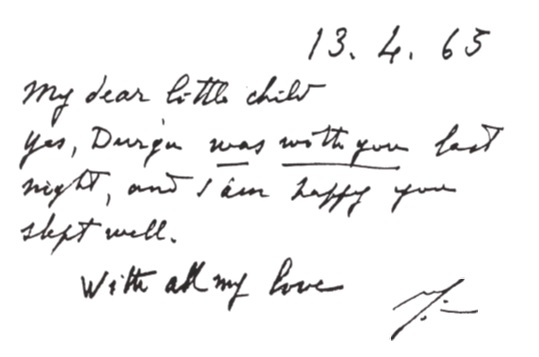 13. 4. 65
My dear little child
Yes, Durga was with you last
night, and I am happy you
slept well.
With all my love